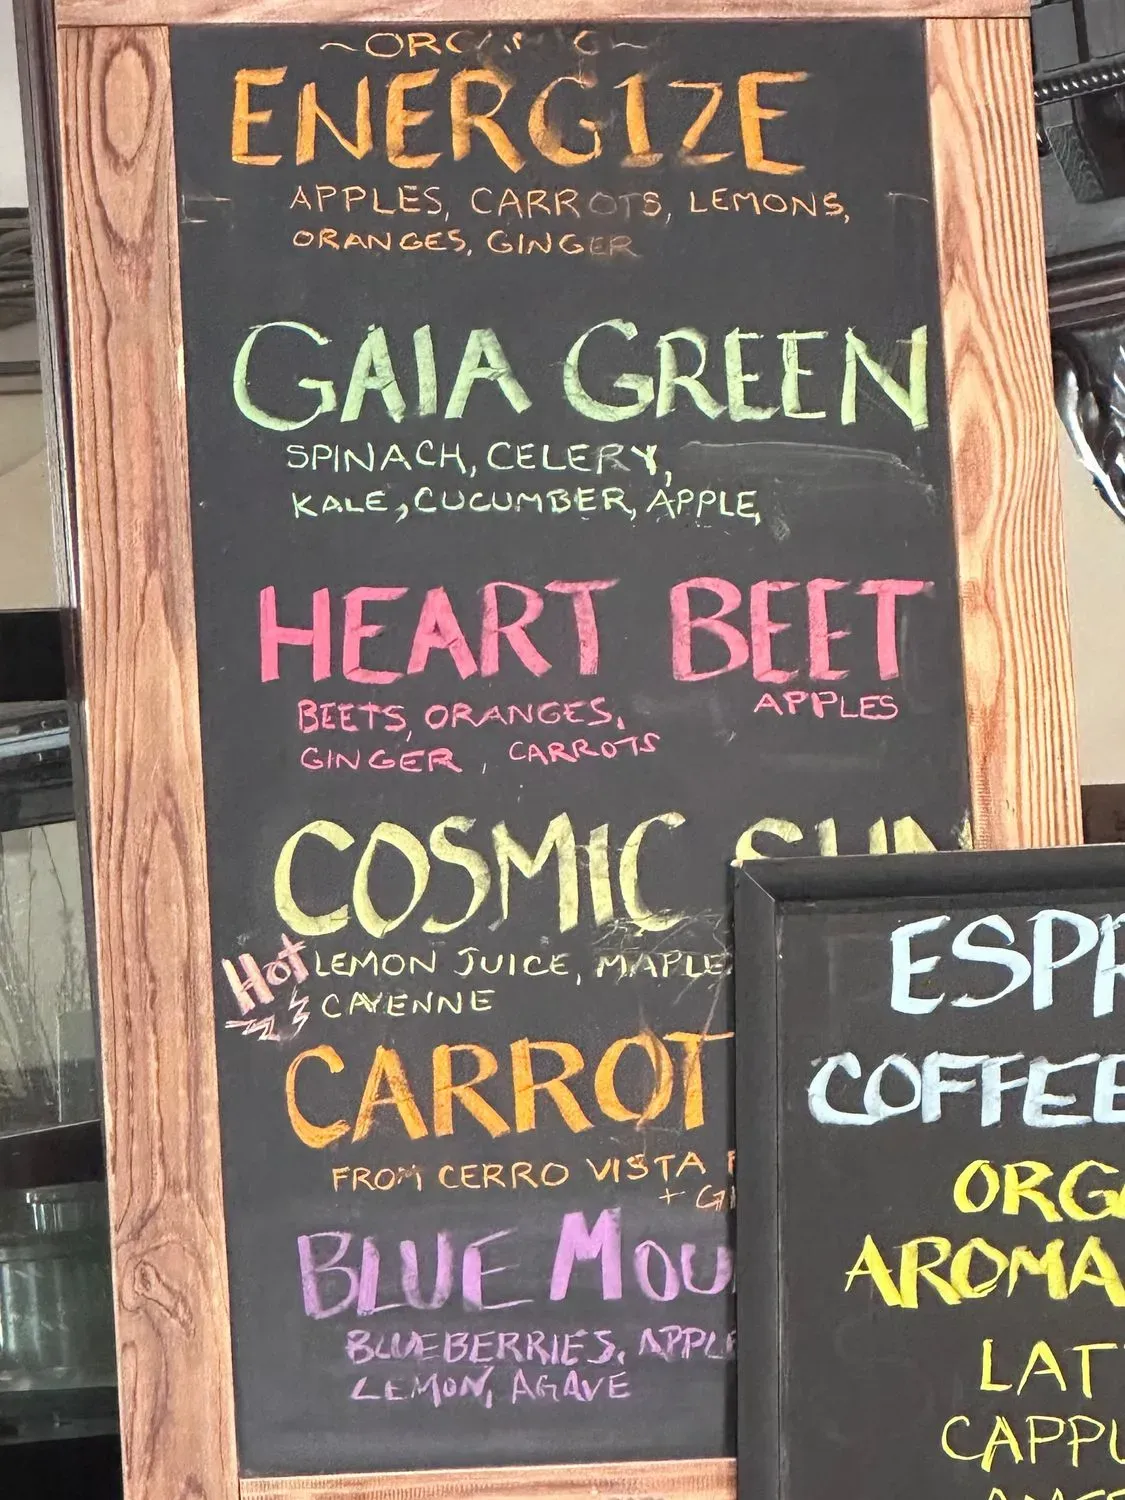 ENERGIZE
APPLES, CARROTS, LEMONS,
ORANGES, GINGER
GAIA GREEN
SPINACH, CELERY,
KALE, CUCUMBER, APPLE,
HEART BEET
BEETS, ORANGES, APPLES
GINGER, CARROTS
COSMIC SUN
Hot LEMON JUICE, MAPLE
CAYENNE
CARROT
FROM CERRO VISTA
+
BLUE
BLUEBERRIES,
LEMON, AGAVE
COFFEE